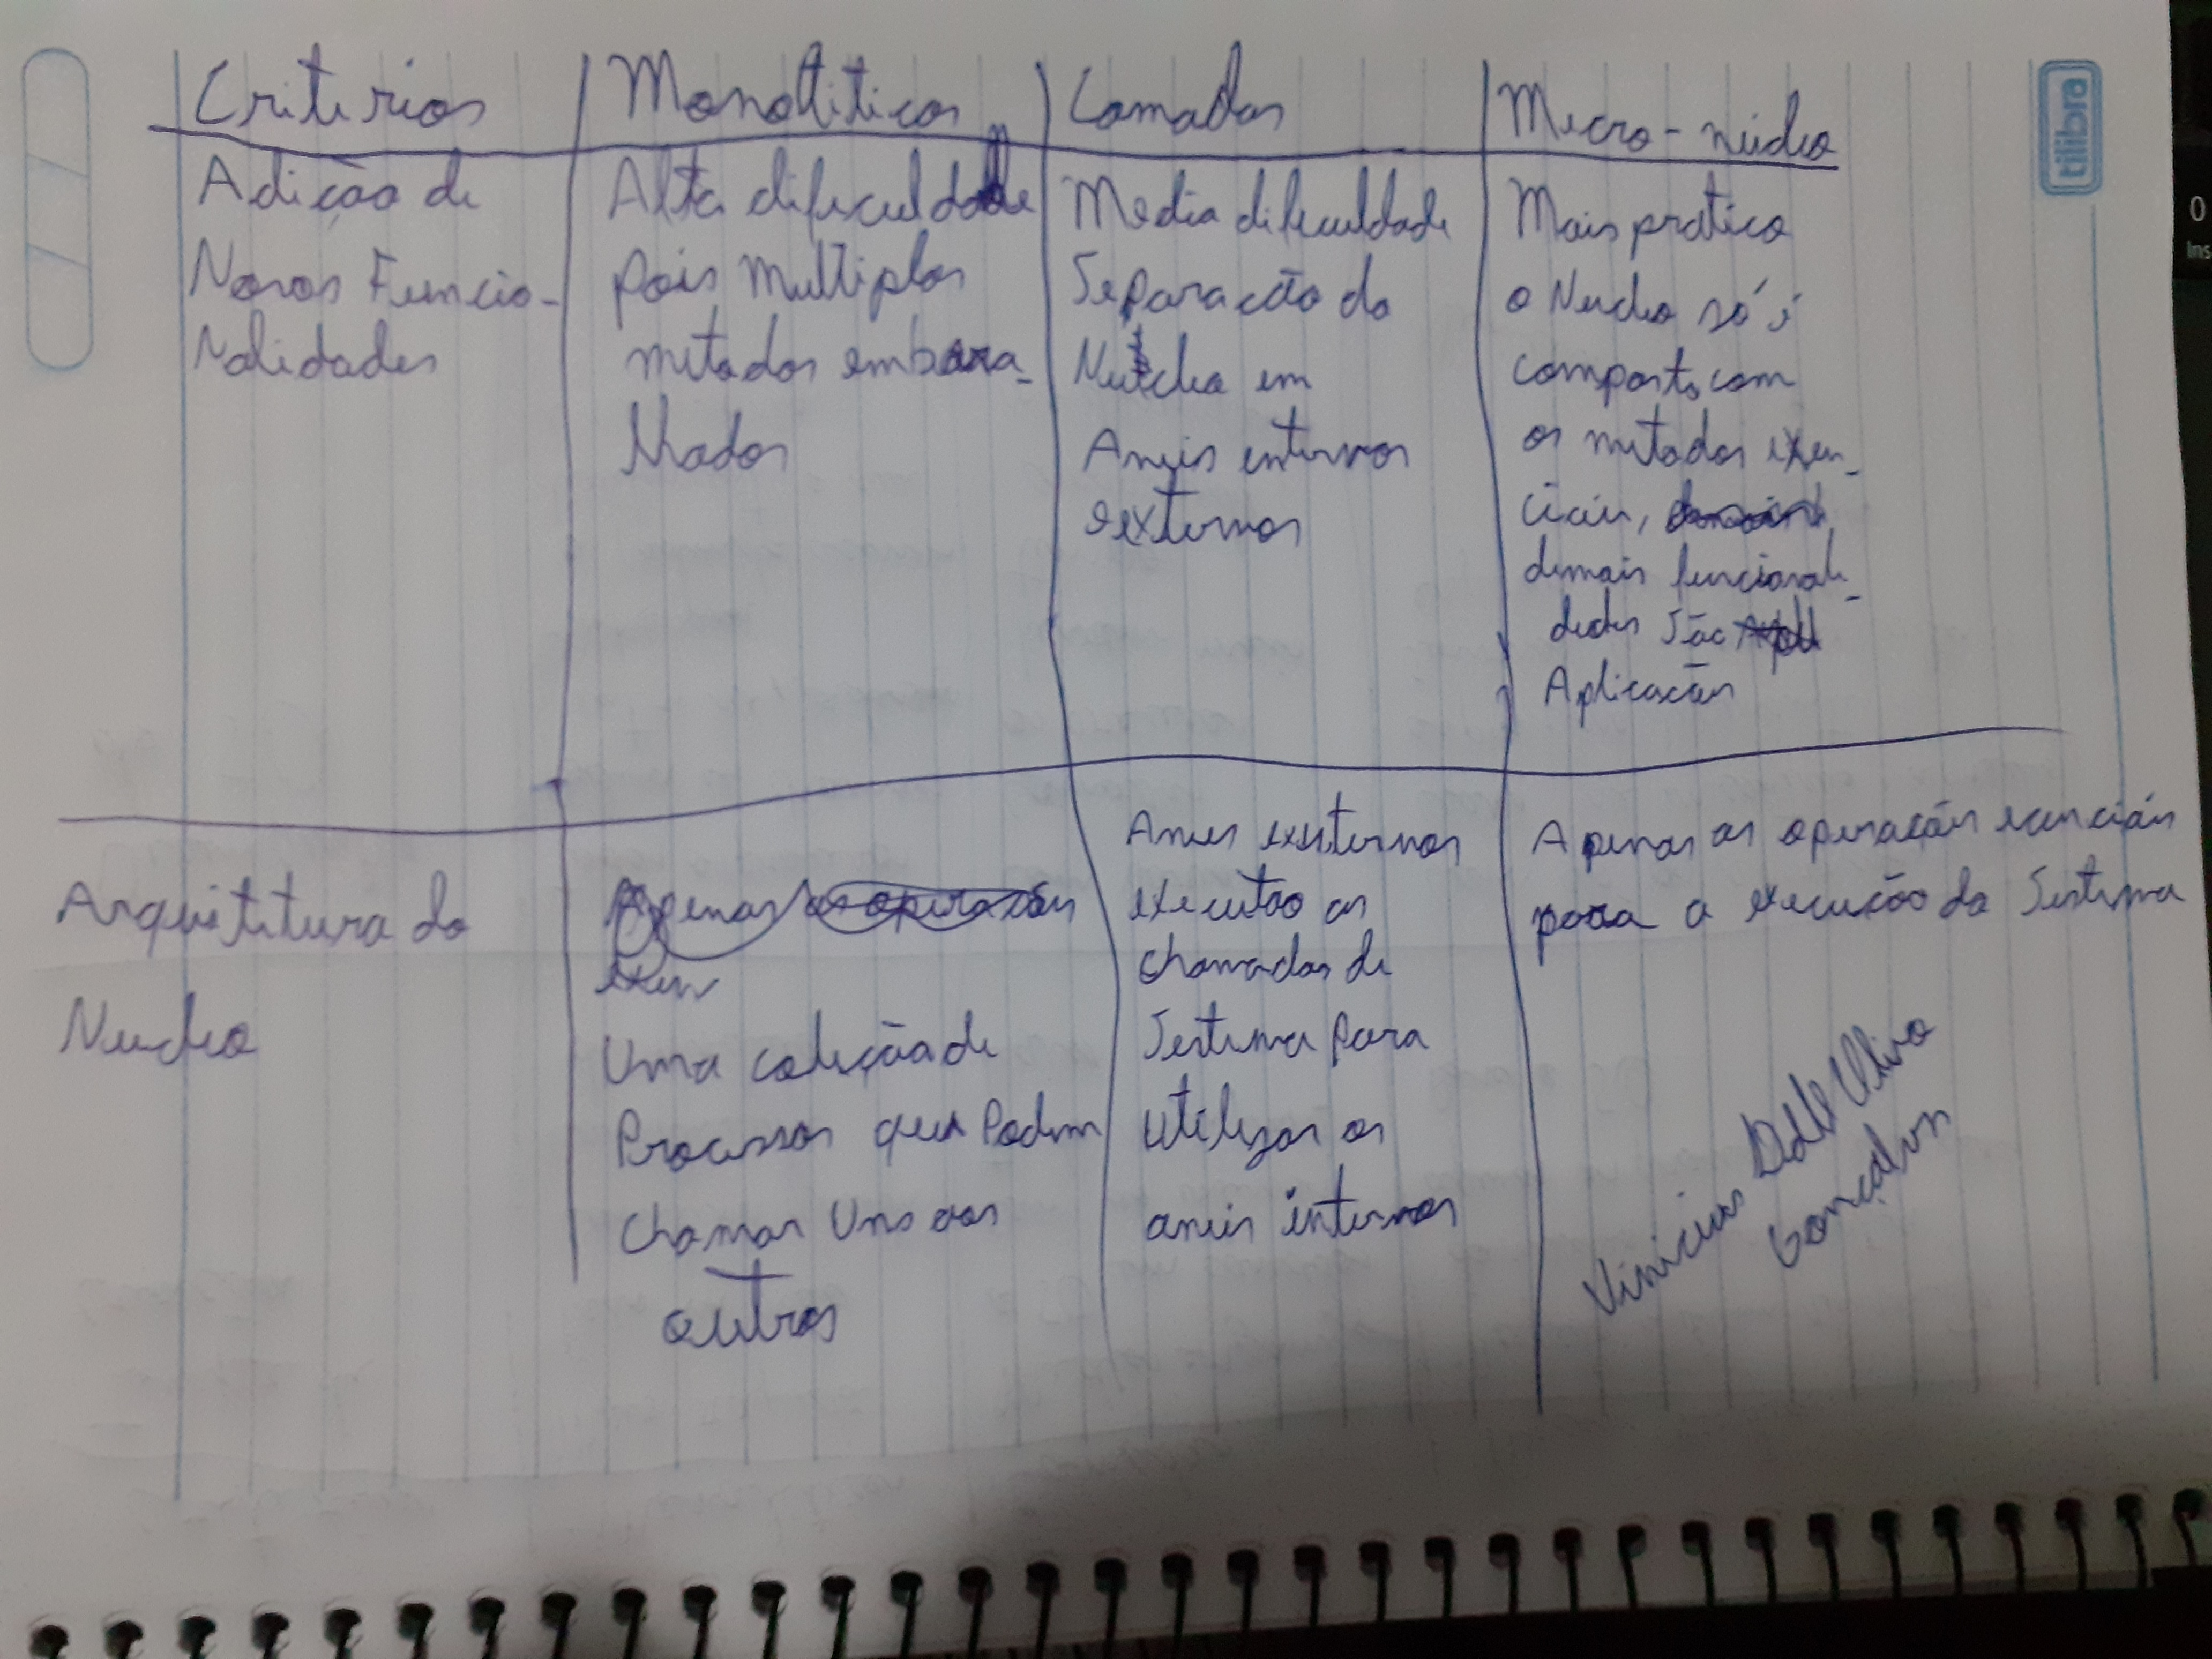 Criterios
Monolíticos
Camadas
Micro-núcleo
Adição de
Novas Funcio-
nalidades
Alta dificuldade
pois Multiplos
metodos embara-
lhados
Media dificuldade
Separação do
Nucleo em
Aneis internos
e externos
Mais pratico
o Nucleo só é
composto com
os metodos exen-
ciais,
demais funcionali-
dades São
Aplicações
Arquitetura do
Nucleo
Apenas as operações
exen
Uma coleção de
Processos que Podem
Chamar Uns aos
outros
Aneis exsternos
executão as
chamadas de
Sistema para
utilizar os
aneis internos
Apenas as operações exenciais
para a execução do Sistema
Vinicius Dall Oliva
Gonçalves
tilibra
0
Ins